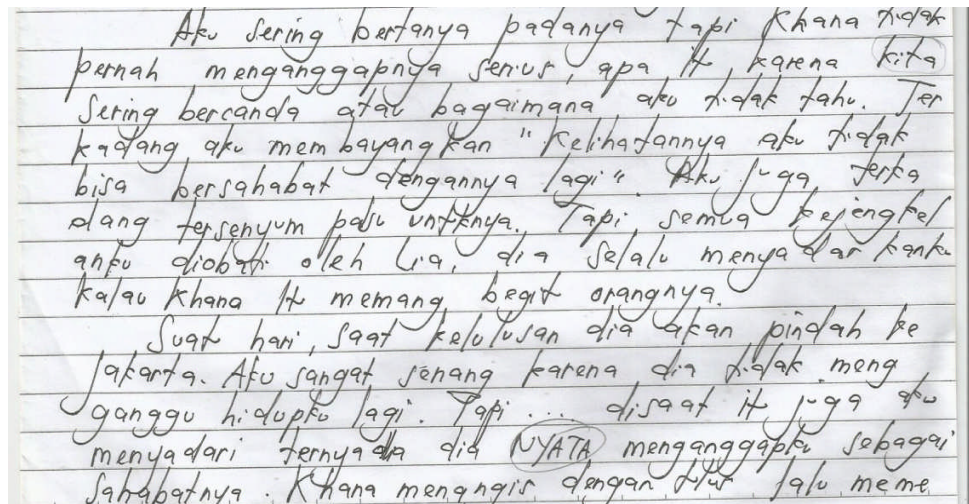 Aku sering bertanya padanya tapi Khana tidak
pernah menganggapnya serius, apa it karena kita
Sering bercanda atau bagaimana aku tidak tahu. Ter
kadang aku membayangkan "Kelihatannya aku tidak
bisa bersahabat dengannya lagi". Aku juga terka
dang tersenyum palsu untknya. Tapi semua kejengkel
anku diobati oleh Lia, dia selalu menyadarkanku
kalau Khana It memang begit orangnya.
Suat hari, saat kelulusan dia akan pindah ke
Jakarta. Aku sangat senang karena dia tidak meng
ganggu hidupku lagi. Tapi ... disaat it juga aku
menyadari ternyata dia NYATA menganggapku sebagai
Sahabatnya. Khana menangis dengan lalu meme